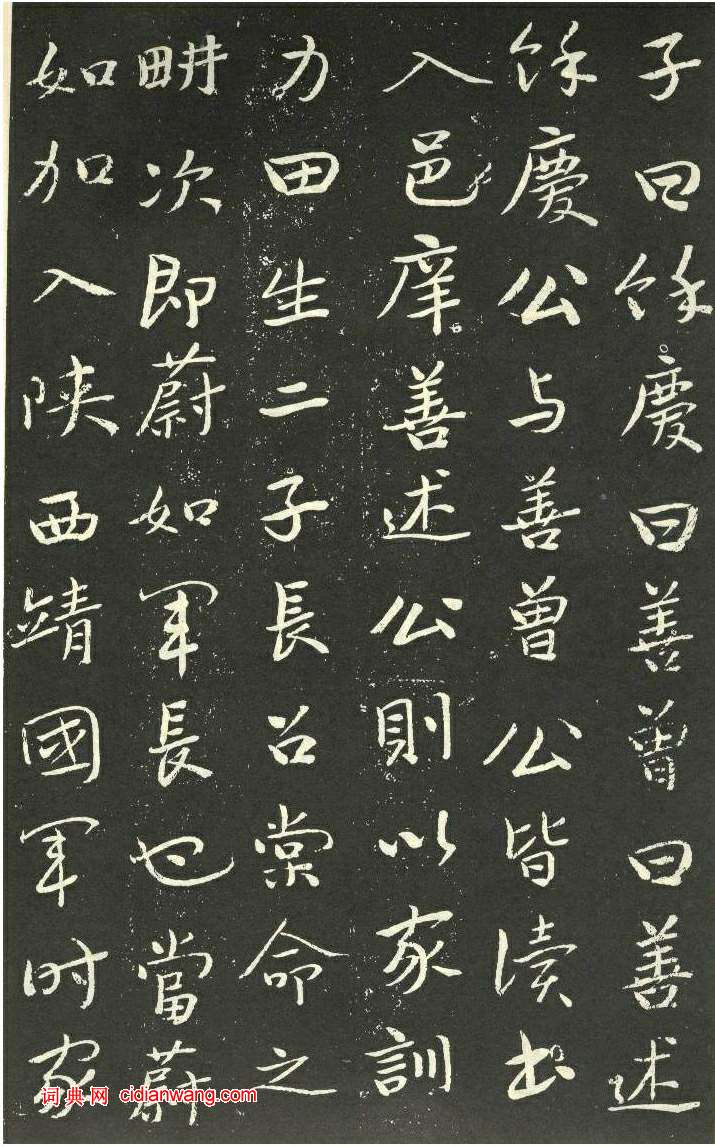 子曰餘慶曰善曾曰善述
餘慶公与善曾公皆讀書
入邑庠善述公則以家訓
力田生二子長召棠命之
畊次即蔚如軍長也當蔚
如加入陝西靖國軍时家
词典网 cidianwang.com